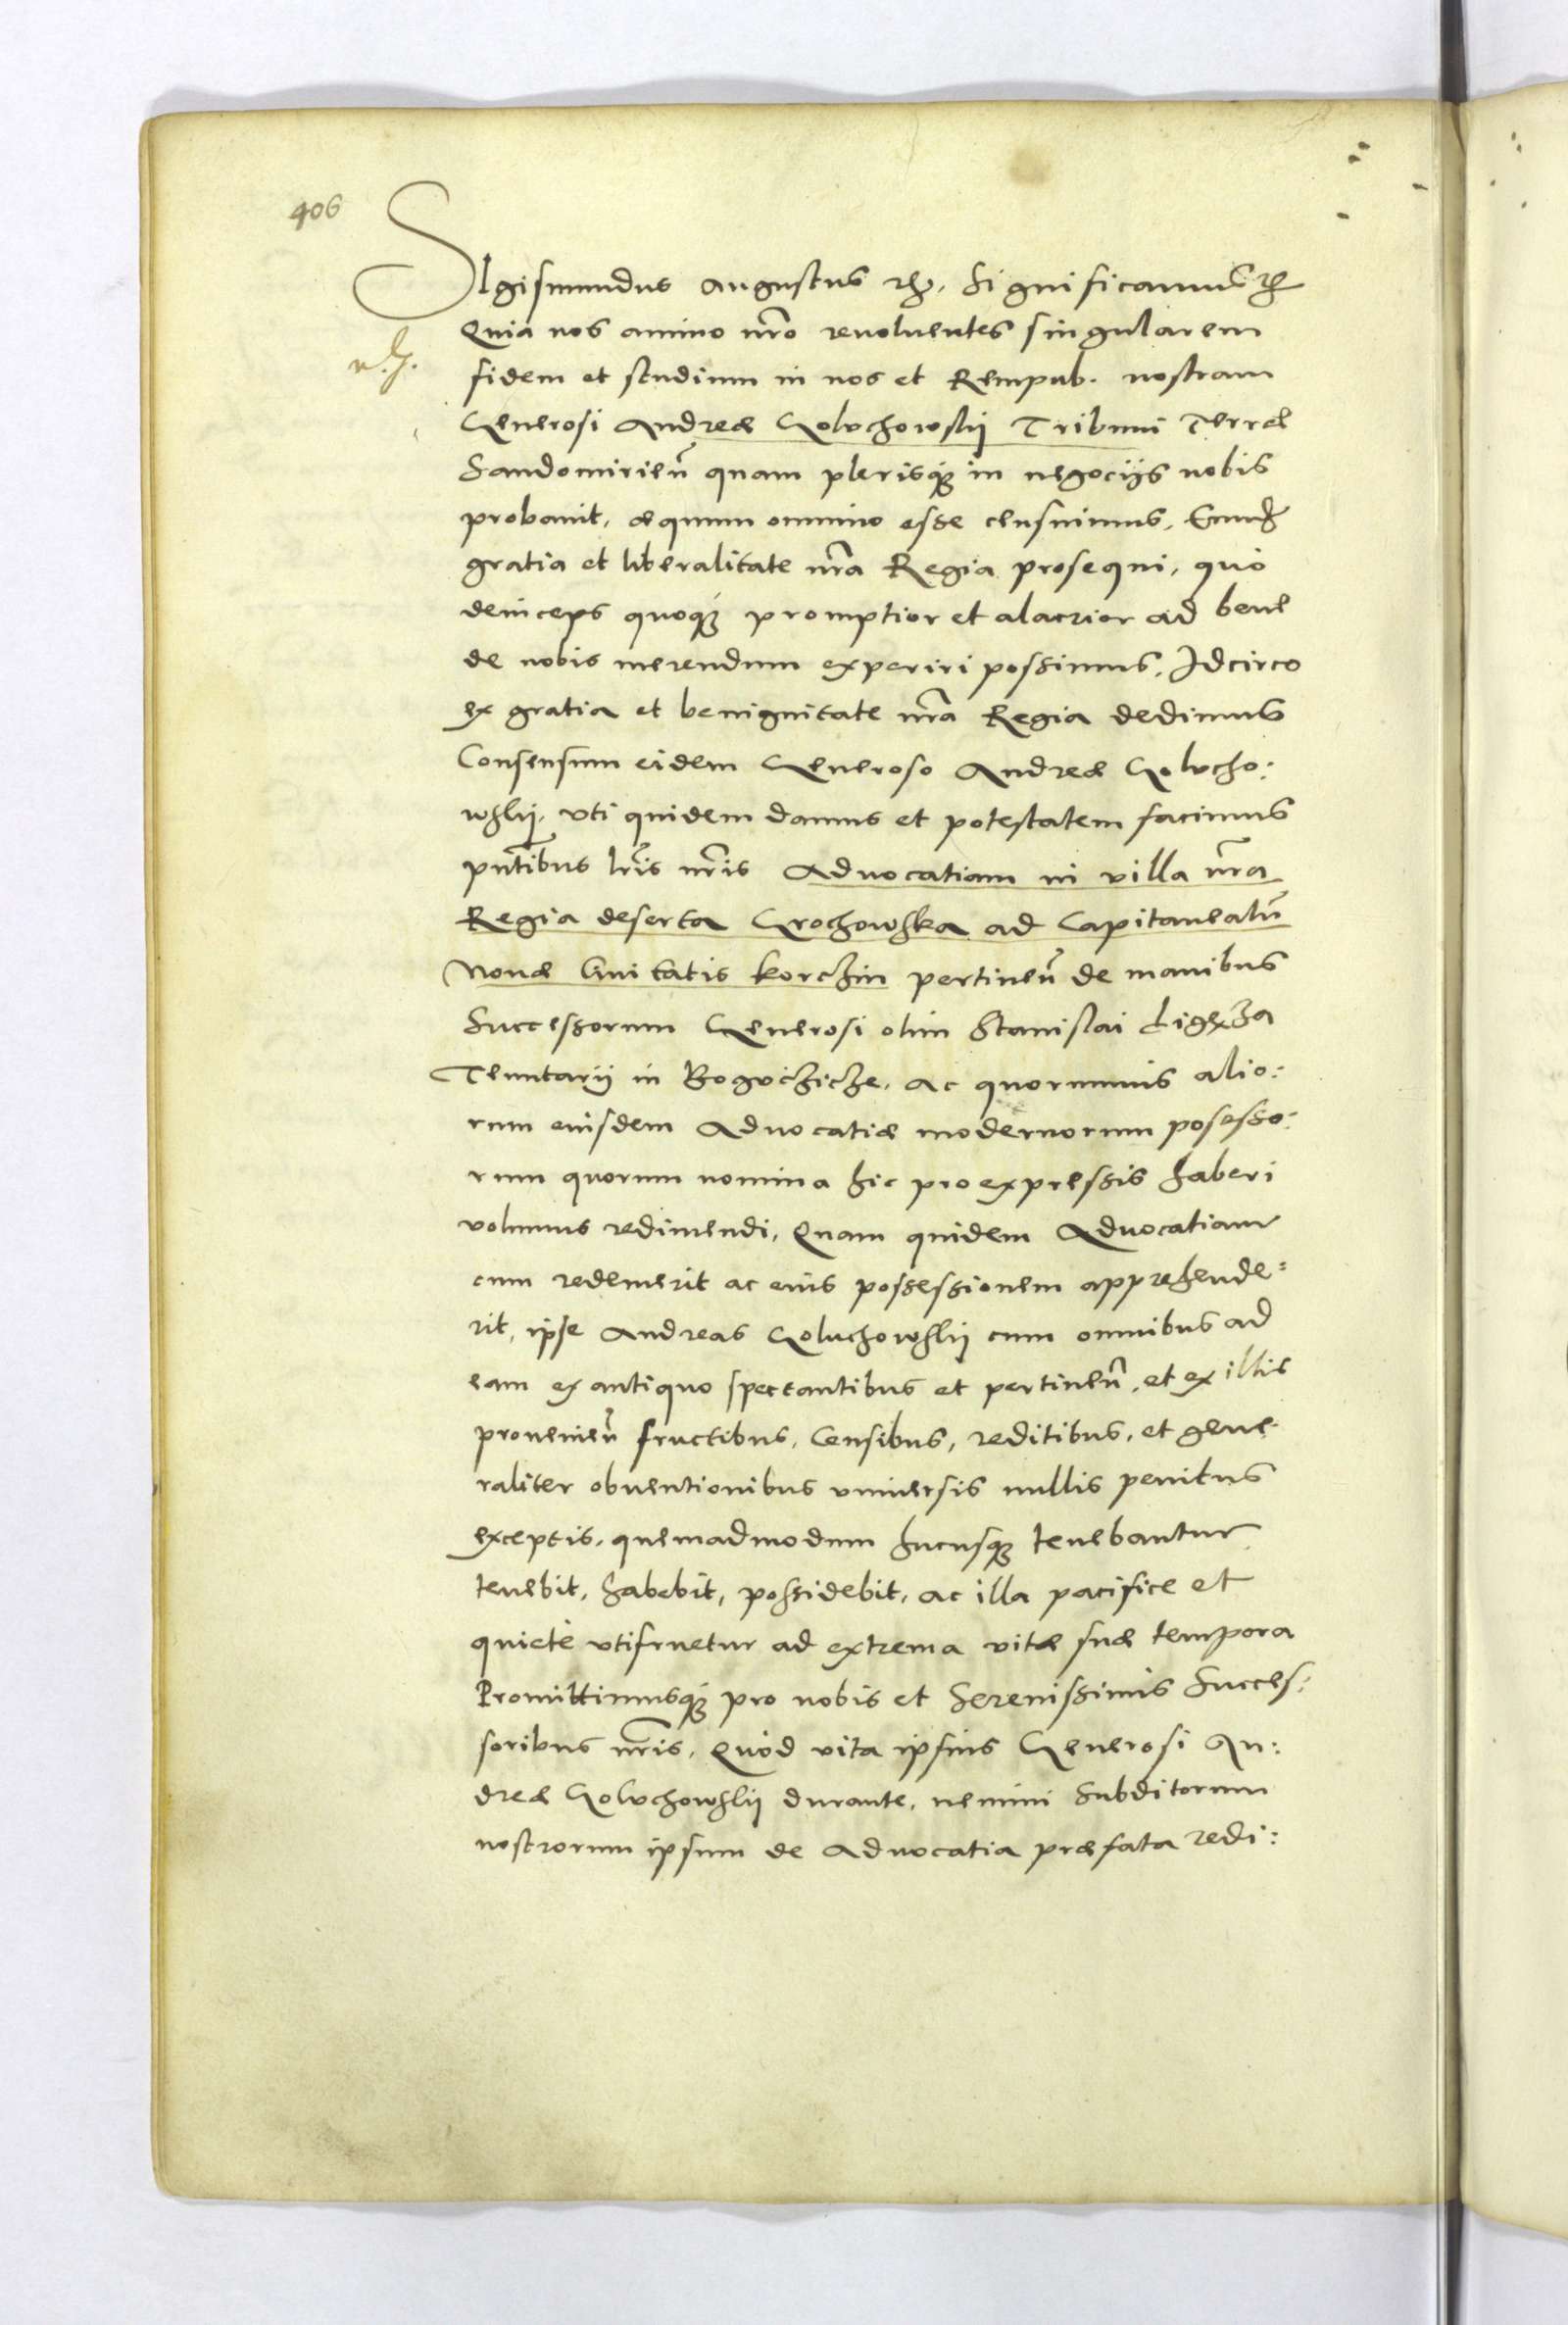 406
SIgismundus Augustus etc. Significamus etc
Quia nos animo nro revolventes singularem
fidem et studium in nos et Rempub. nostram
Generosi Andreæ Goluchowskij Tribuni Terræ
Sandomirien quam plerisque in negocijs nobis
probavit, æquum omnino esse censuimus, Eundem
gratia et liberalitate nra Regia prosequi, quò
deinceps quoque promptior et alacrior ad bene
de nobis merendum experiri possimus, Idcirco
ex gratia et benignitate nra Regia dedimus
Consensum eidem Generoso Andreæ Golucho:
wskij, vti quidem damus et potestatem facimus
pntibus lris nris Advocatiam in villa nra
Regia deserta Grochowska ad Capitaneatū
Novæ Civitatis Korczin pertinen de manibus
Successorum Generosi olim Stanislai Ligęza
Tenutarij in Boguczicze, ac quorumvis alio:
rum eiusdem Advocatiæ modernorum posesso:
rum quorum nomina hic pro expressis haberi
volumus redimendi, Quam quidem Advocatiam
cum redemerit ac eius possessionem apprehende:
rit, ipse Andreas Goluchowskij cum omnibus ad
eam ex antiquo spectantibus et pertinen, et ex illis
provenien fructibus, Censibus, reditibus, et gene:
raliter obventionibus vniversis nullis penitus
exceptis, quemadmodum hucusque tenebantur
tenebit, habebit, possidebit, ac illa pacifice et
quietè vtifruetur ad extrema vitæ suæ tempora
Promittimusque pro nobis et Serenissimis Succes:
soribus nris, Quòd vita ipsius Generosi An:
dreæ Goluchowskij durante, nemini Subditorum
nostrorum ipsum de Advocatia præfata redi: